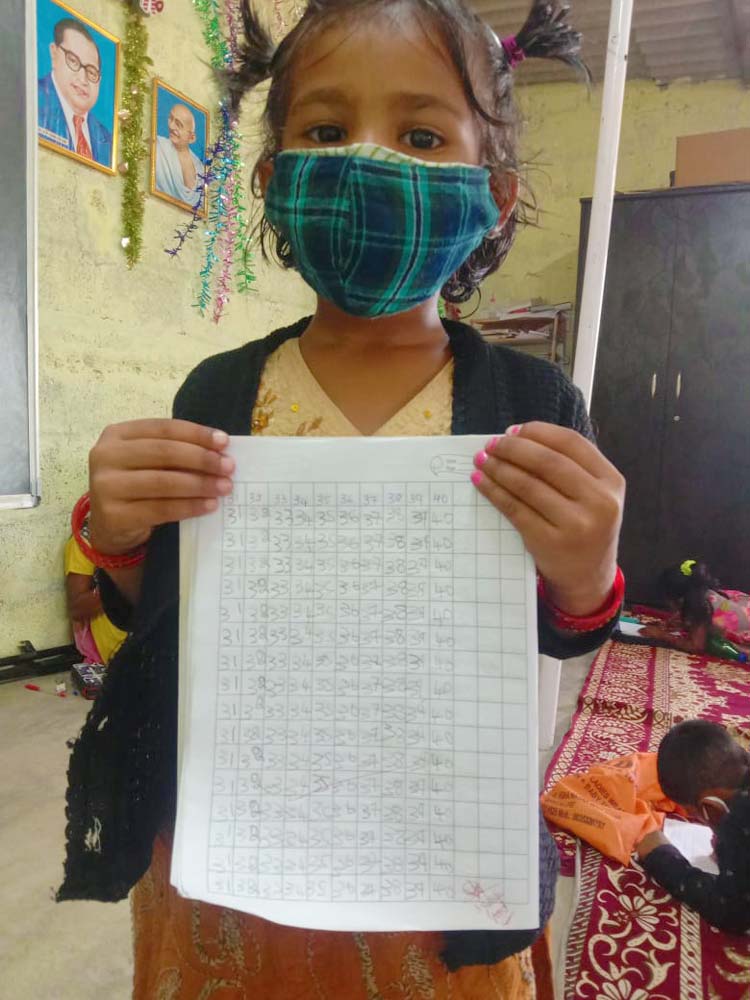 31 32 33 34 35 36 37 38 39 40
31 32 33 34 35 36 37 38 39 40
31 32 33 34 35 36 37 38 39 40
31 32 33 34 35 36 37 38 39 40
31 32 33 34 35 36 37 38 39 40
31 32 33 34 35 36 37 38 39 40
31 32 33 34 35 36 37 38 39 40
31 32 33 34 35 36 37 38 39 40
31 32 33 34 35 36 37 38 39 40
31 32 33 34 35 36 37 38 39 40
31 32 33 34 35 36 37 38 39 40
31 32 33 34 35 36 37 38 39 40
31 32 33 34 35 36 37 38 39 40
31 32 33 34 35 36 37 38 39 40
31 32 33 34 35 36 37 38 39 40
31 32 33 34 35 36 37 38 39 40
31 32 33 34 35 36 37 38 39 40